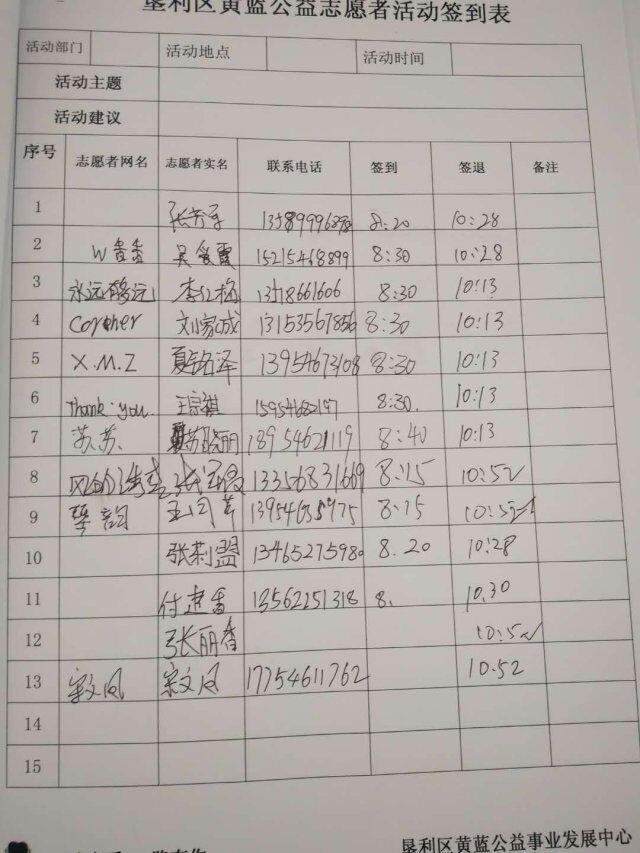 垦利区黄蓝公益志愿者活动签到表
活动部门 活动地点 活动时间
活动主题
活动建议
序号 志愿者网名 志愿者实名 联系电话 签到 签退 备注
1 8:20 10:28
2 W 吴 霞 15215468899 8:30 10:28
3 永远 李红梅 13518661606 8:30 10:13
4 刘家成 13153567856 8:30 10:13
5 X.M.Z 夏铭泽 13954673108 8:30 10:13
6 Thank you. 王宗祺 8:30. 10:13
7 苏苏. 苏晓丽 18954621119 8:40 10:13
8 风的 13356831669 8:15 10:52
9 琴韵 8:15 10:52
10 张莉盟 13465275980 8.20 10:28
11 付建香 13562251318 8. 10.30
12 张丽香 10:52
13 宋文凤 宋文凤 17754611762 10.52
14
15
垦利区黄蓝公益事业发展中心